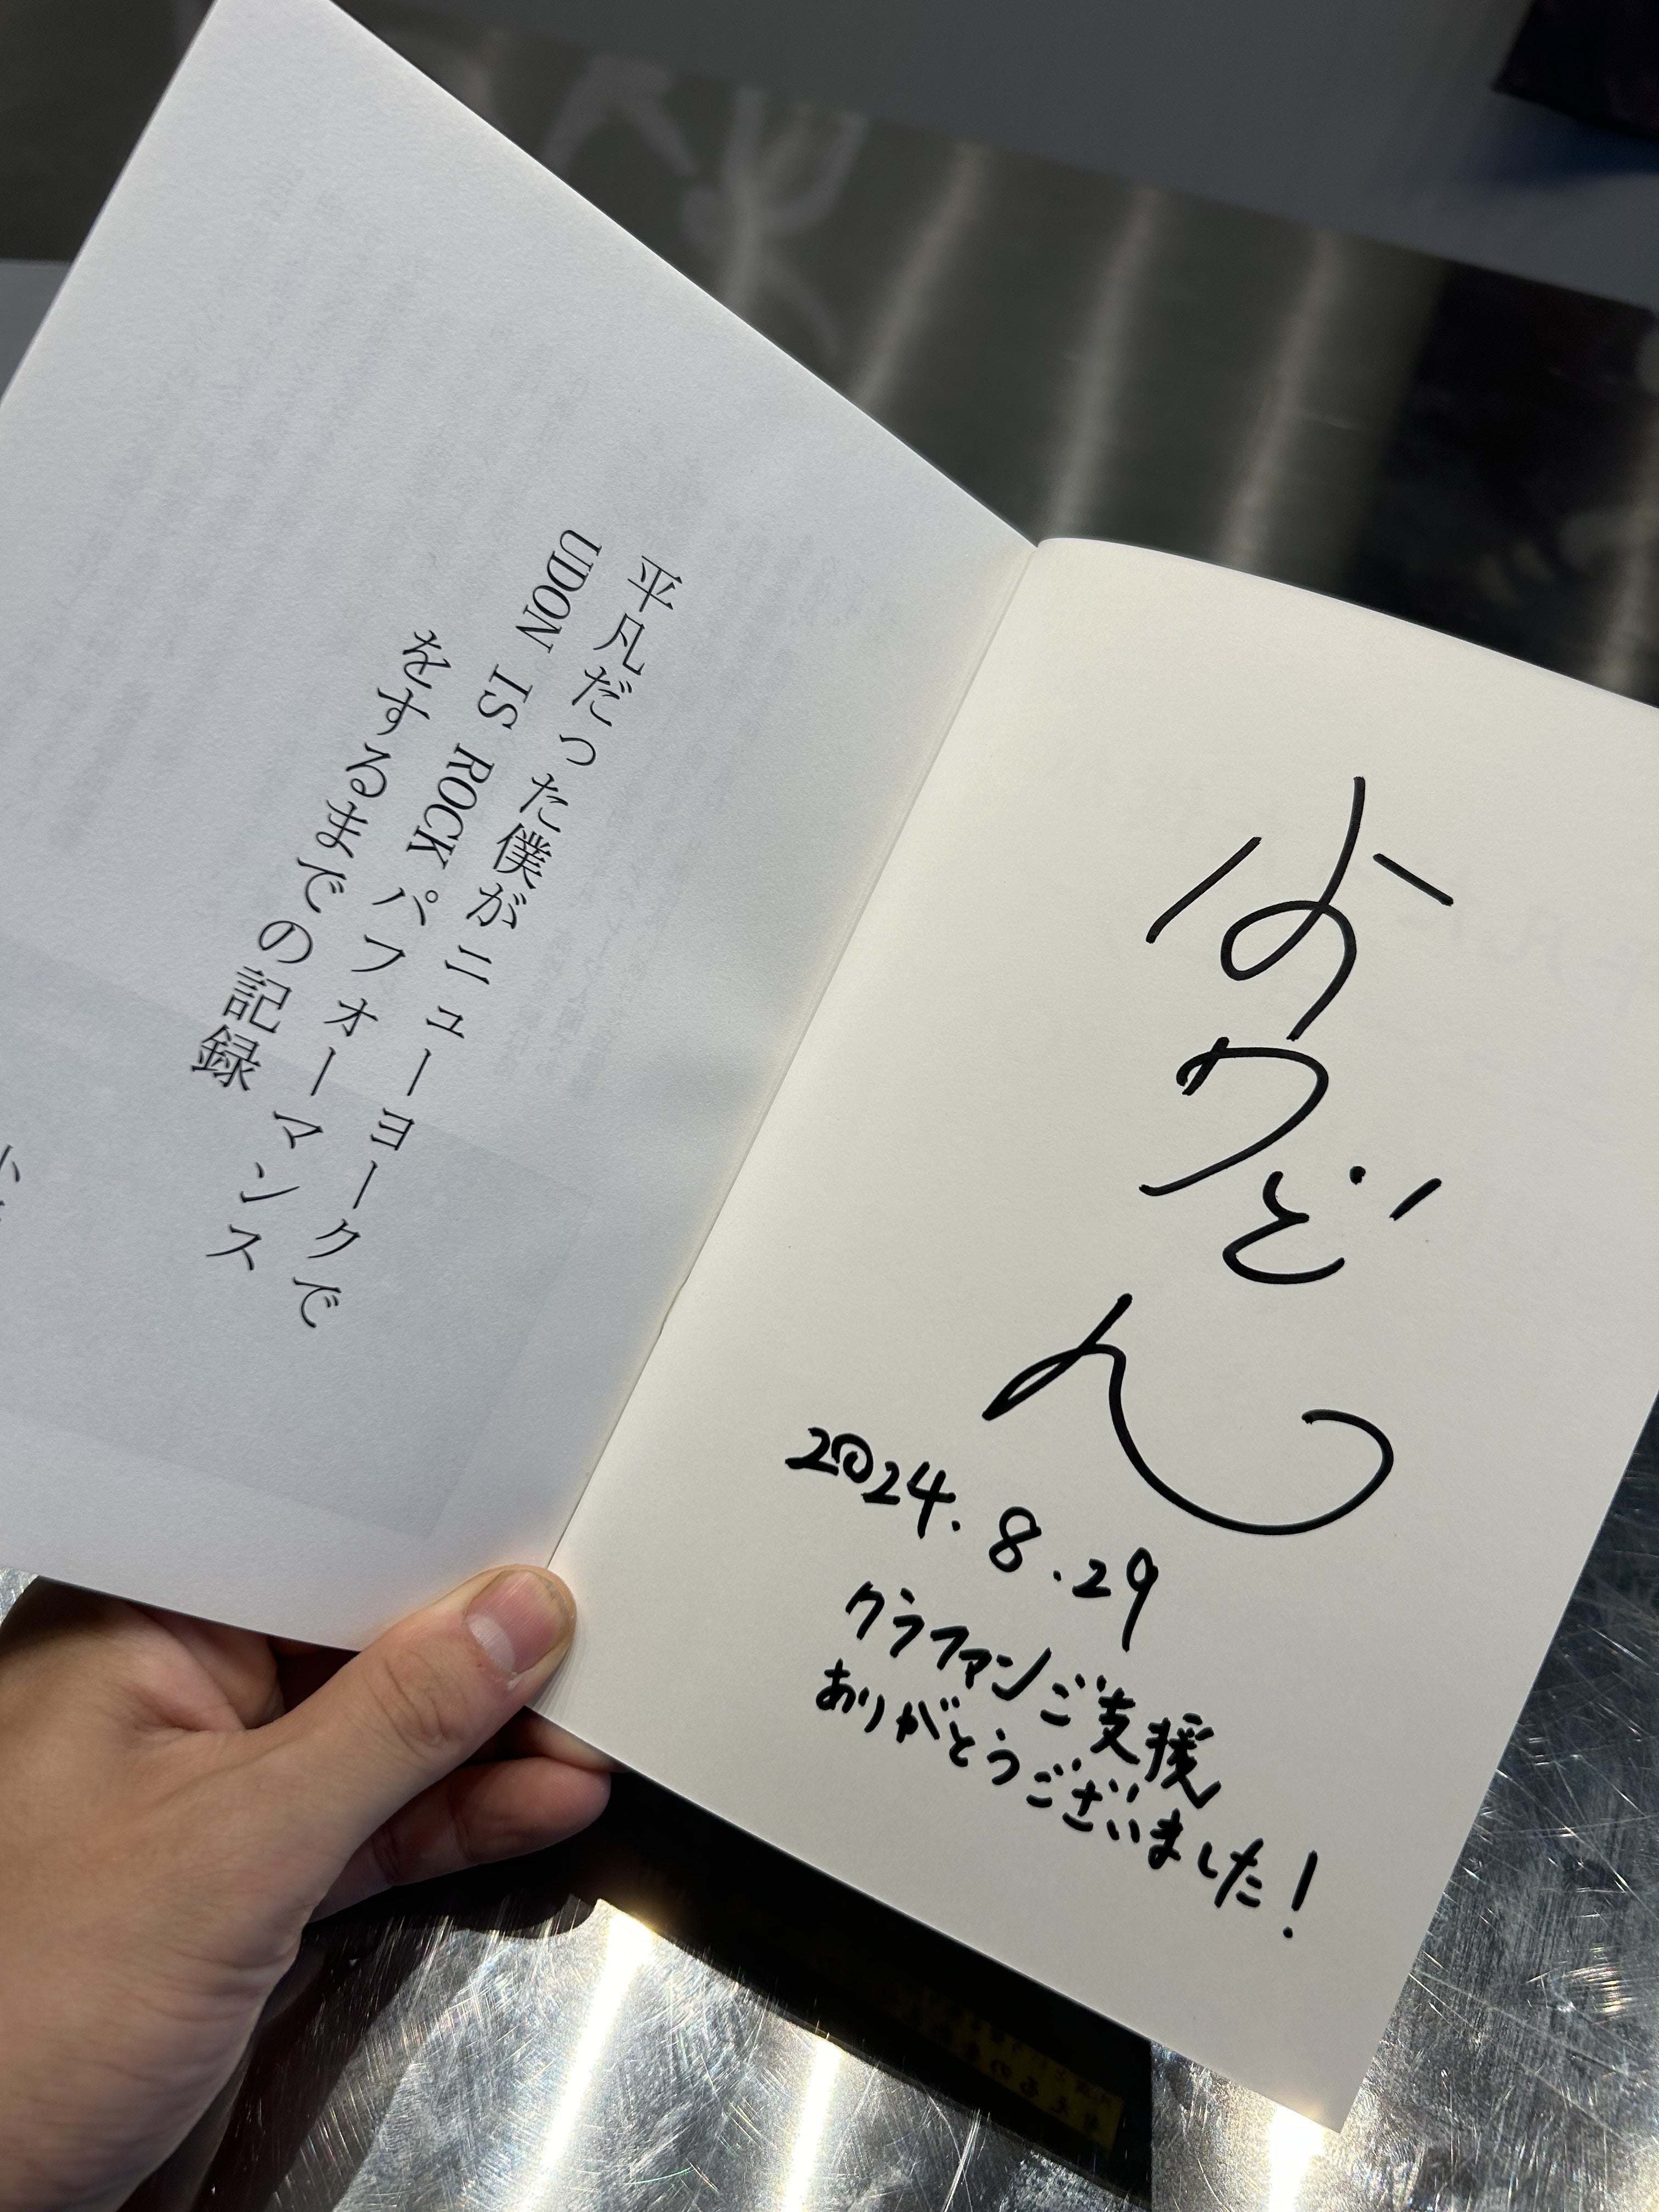 うどん
2024.8.29
クラファンご支援
ありがとうございました!
平凡だった僕がニューヨークで
UDON IS ROCK パフォーマンス
をするまでの記録
小